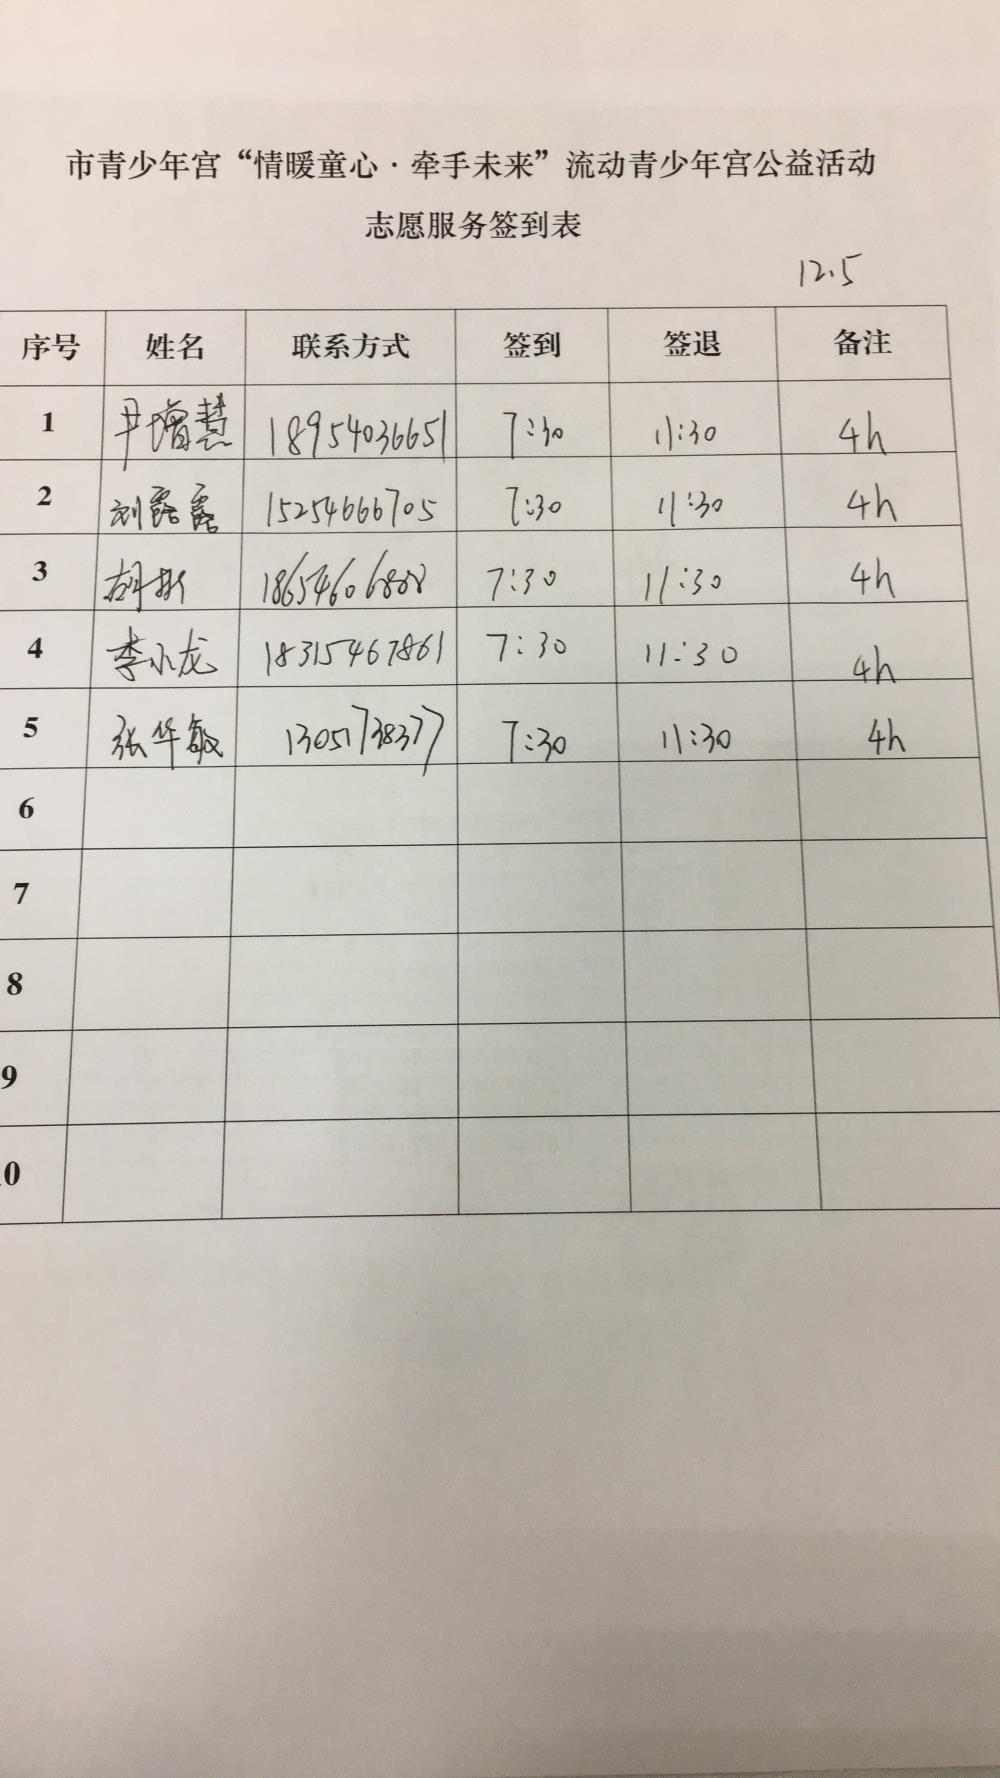 市青少年宫“情暖童心·牵手未来”流动青少年宫公益活动
志愿服务签到表
12.5
序号 姓名 联系方式 签到 签退 备注
1 尹增慧 18954036651 7:30 11:30 4h
2 刘露露 15254666705 7:30 11:30 4h
3 胡彬 18654606888 7:30 11:30 4h
4 李小龙 18315467861 7:30 11:30 4h
5 张华敏 13051738377 7:30 11:30 4h
6
7
8
9
10